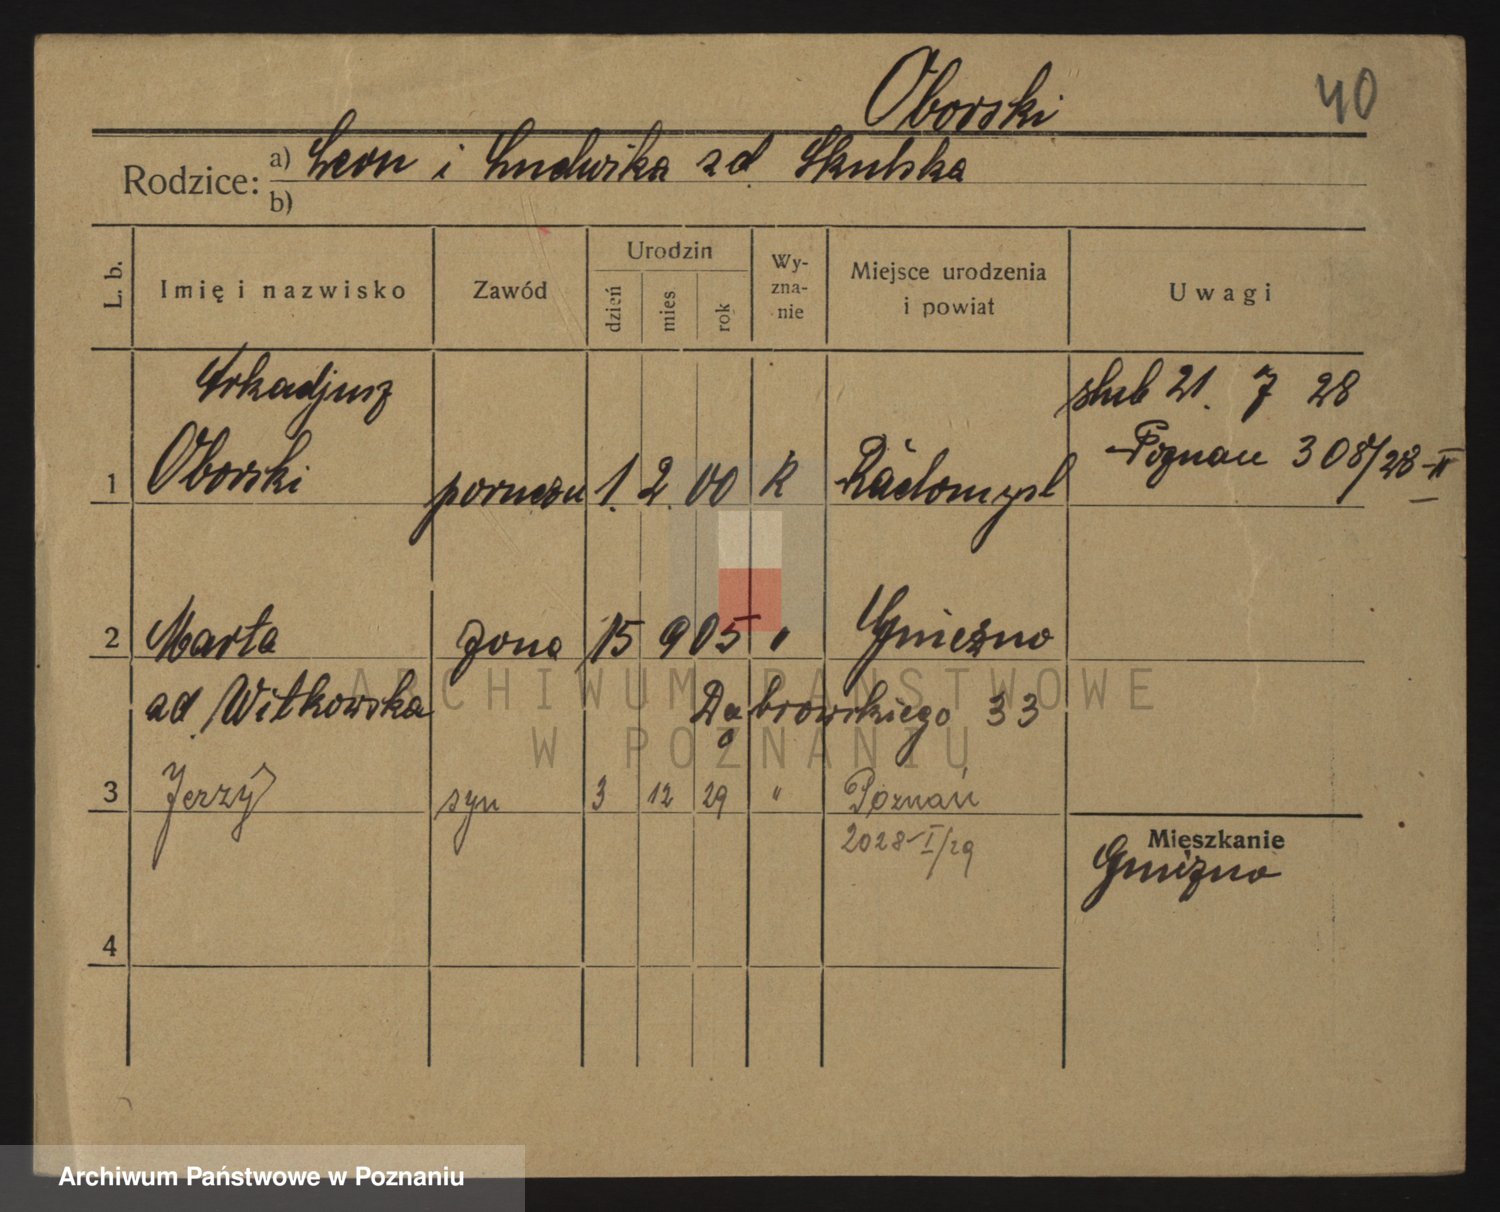 Oborski
40
Rodzice: a) Leon i Ludwika zd Skulska
b)
L. b. Imię i nazwisko Zawód Urodzin dzień mies rok Wyznanie Miejsce urodzenia i powiat Uwagi
Arkadjusz
ślub 21. 7 28
Poznań 308/28 II
1 Oborski poruczn 1. 2. 00 R Radomyśl
2 Marta żona 15 9 05 " Gniezno
zd. Witkowska Dąbrowskiego 33
3 Jerzy syn 3 12 29 " Poznań
2028 I/29
Mieszkanie
Gniezno
4
ARCHIWUM PAŃSTWOWE
W POZNANIU
Archiwum Państwowe w Poznaniu